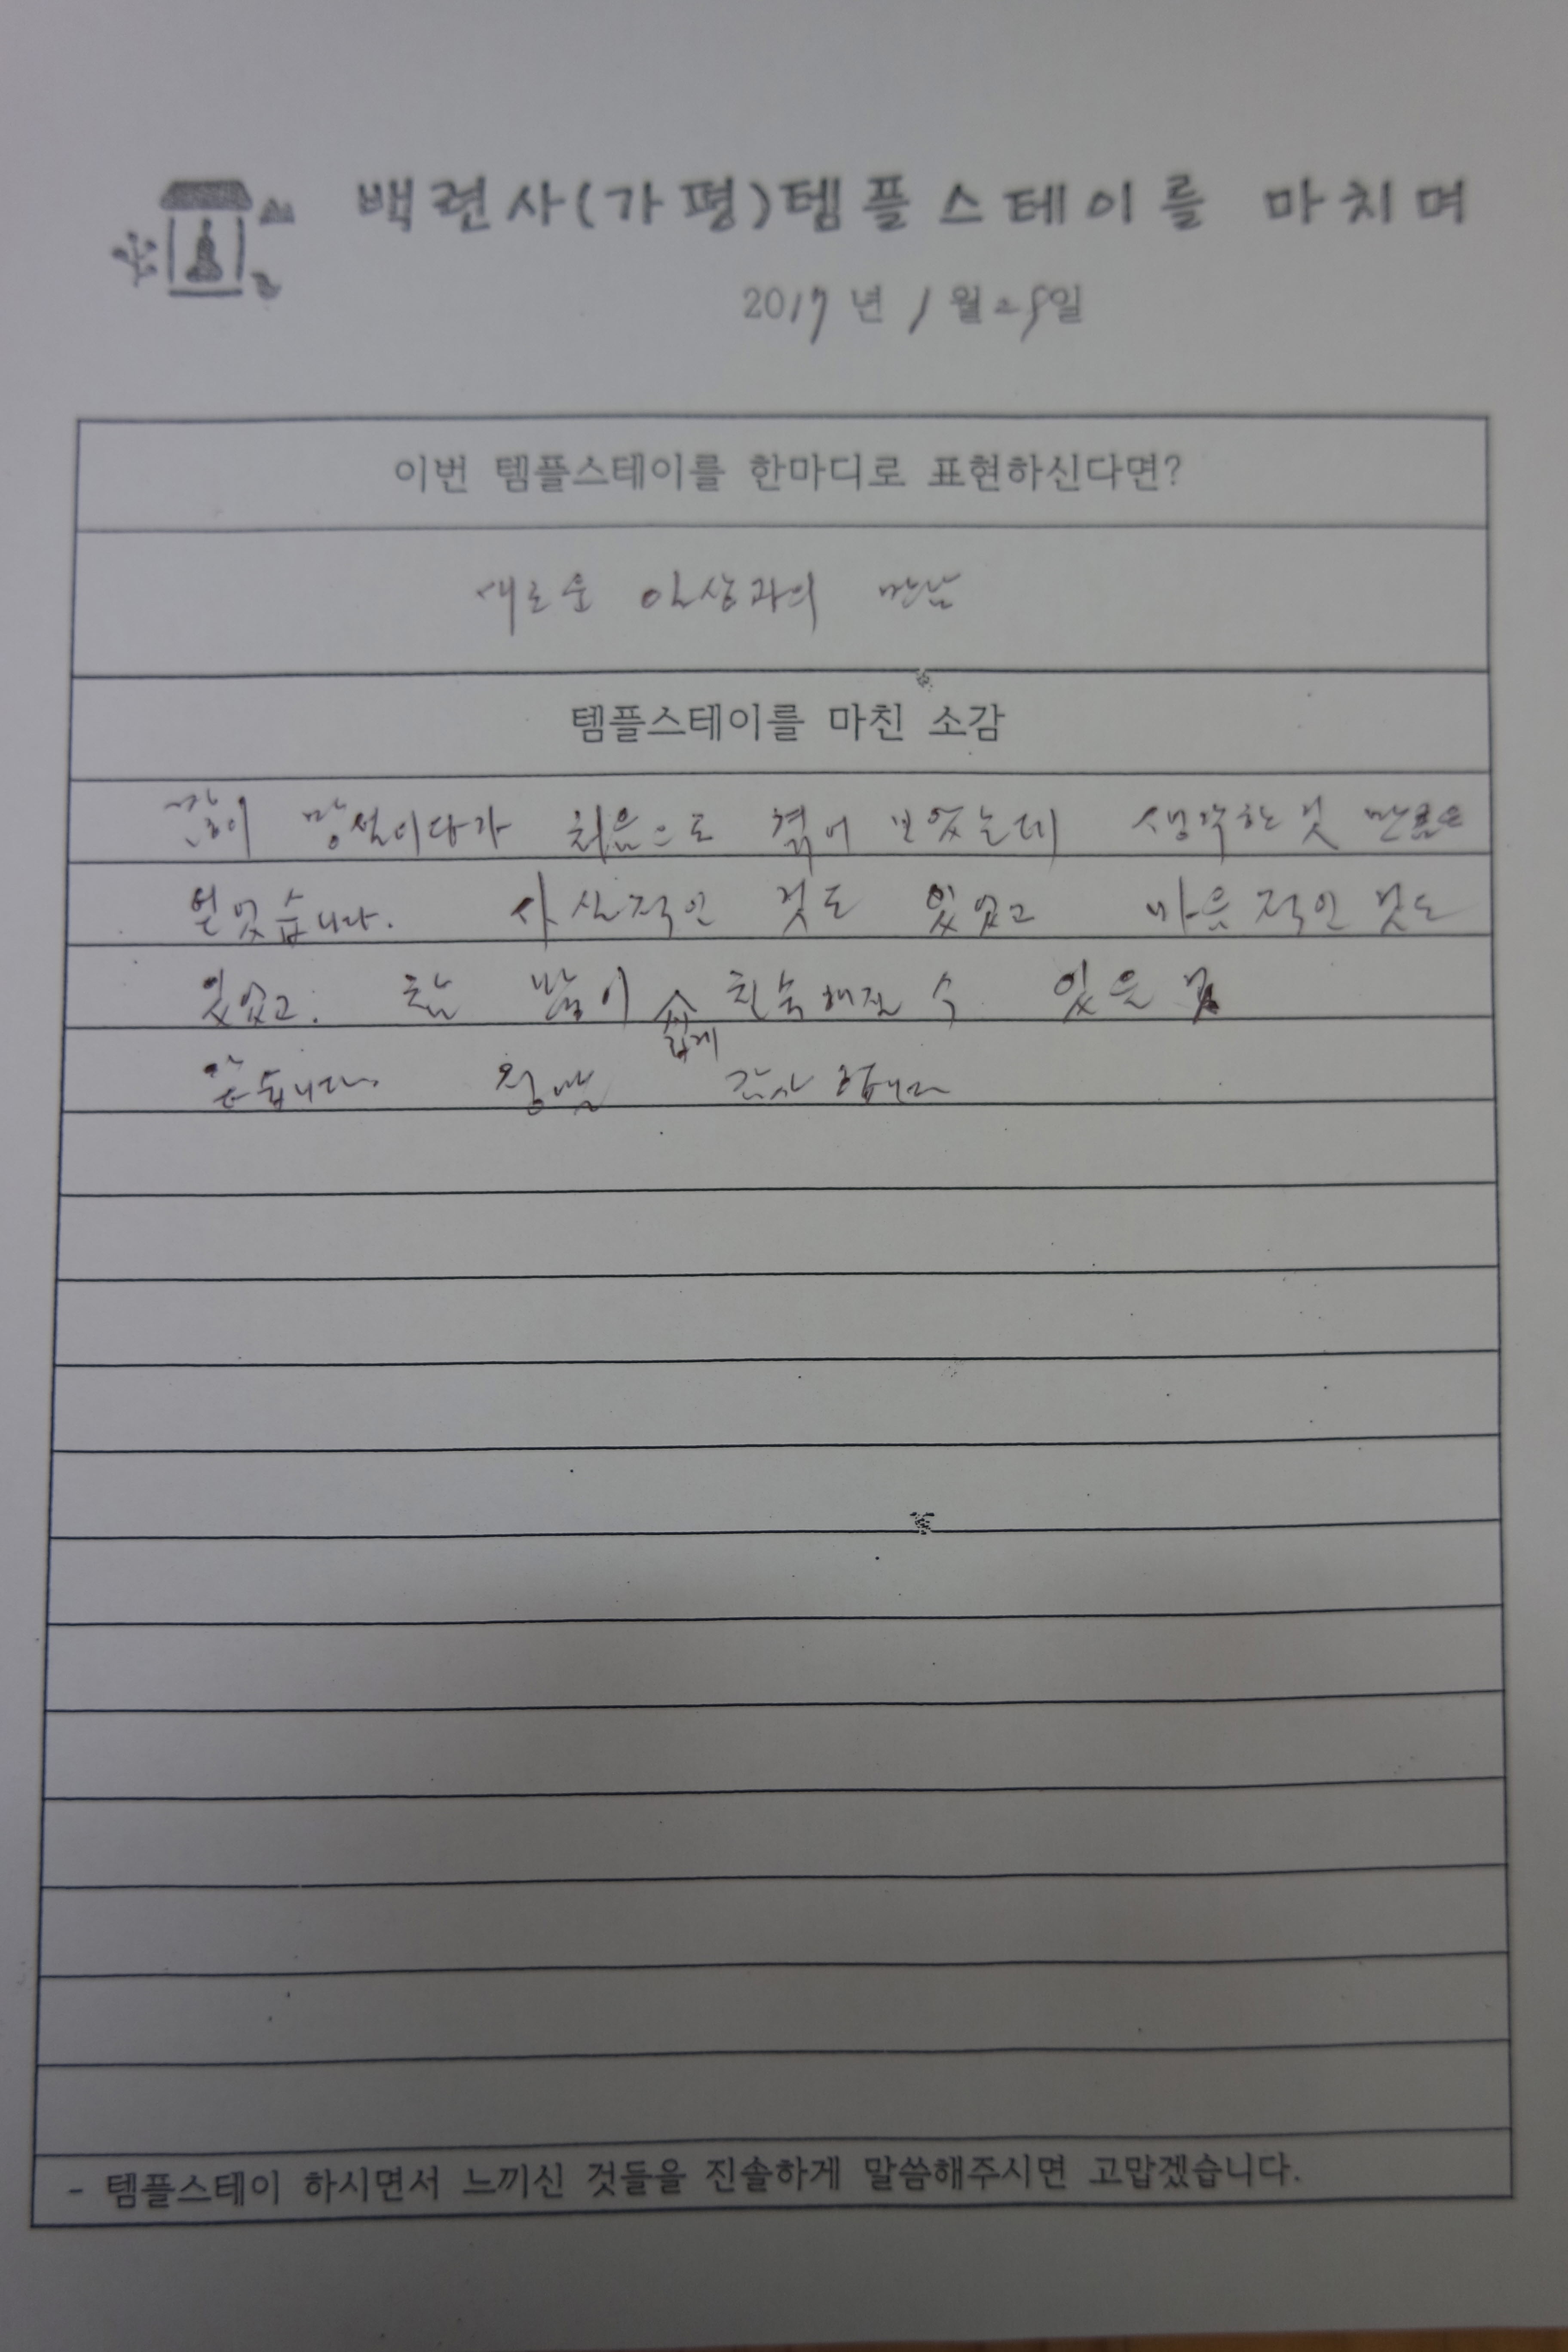 백련사(가평)템플스테이를 마치며
2017년 1월 25일
이번 템플스테이를 한마디로 표현하신다면?
새로운 인상과의 만남
템플스테이를 마친 소감
많이 망설이다가 처음으로 겪어 보았는데 생각한 것 만큼은
얻었습니다. 사실적인 것도 있었고 마음적인 것도
있었고. 참 많이 쉽게 친숙해질 수 있을 것
같습니다. 정말 감사합니다
- 템플스테이 하시면서 느끼신 것들을 진솔하게 말씀해주시면 고맙겠습니다.